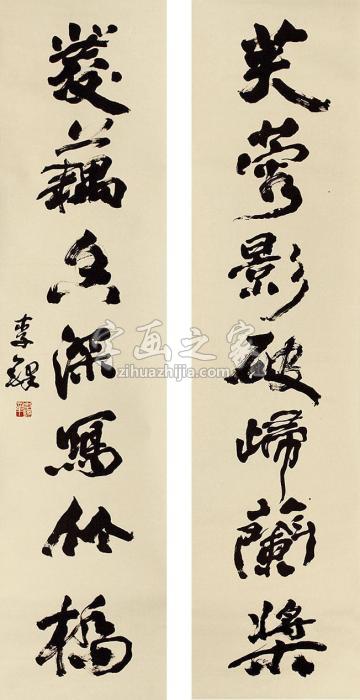 芙蓉影破歸蘭槳
菱藕香深寫竹橋
李鐸
字画之家
zihuazhijia.com